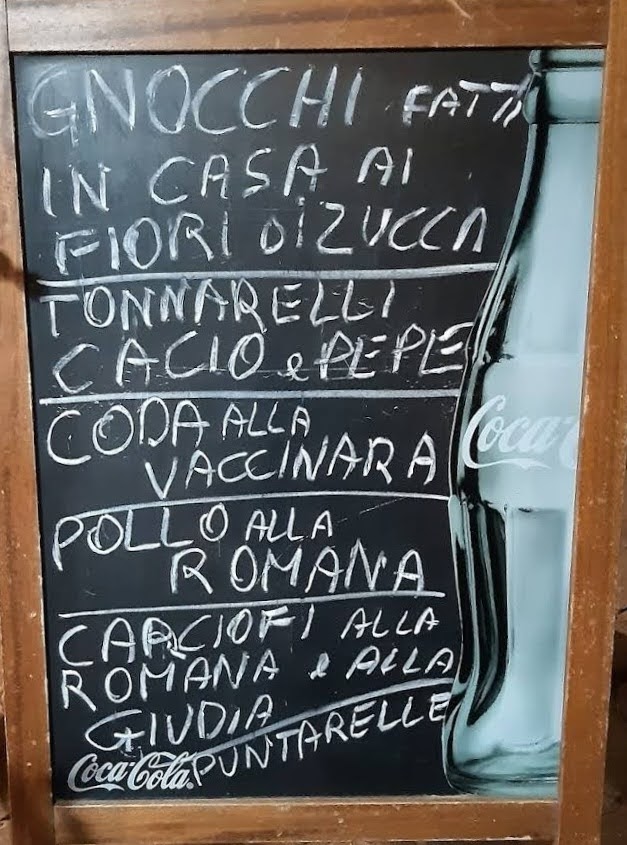 GNOCCHI FATTI
IN CASA AI
FIORI DI ZUCCA
TONNARELLI
CACIO e PEPE
CODA ALLA
VACCINARA
POLLO ALLA
ROMANA
CARCIOFI ALLA
ROMANA e ALLA
GIUDIA
PUNTARELLE
Coca-Cola
Coca-C